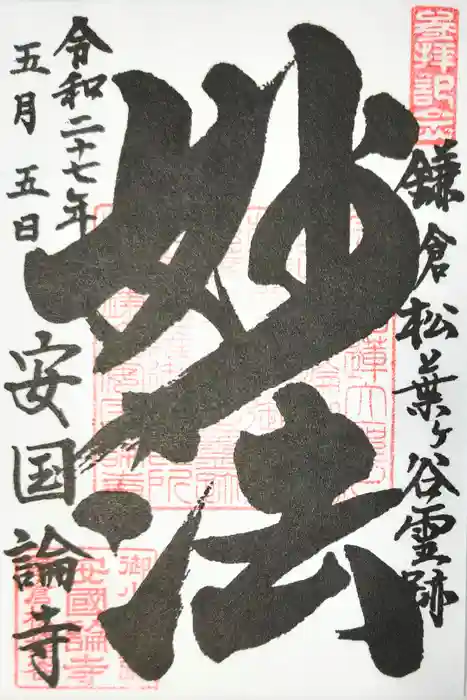 參拝記念
鎌倉松葉ヶ谷霊跡
妙法
令和二十七年
五月五日
安国論寺
安國論寺